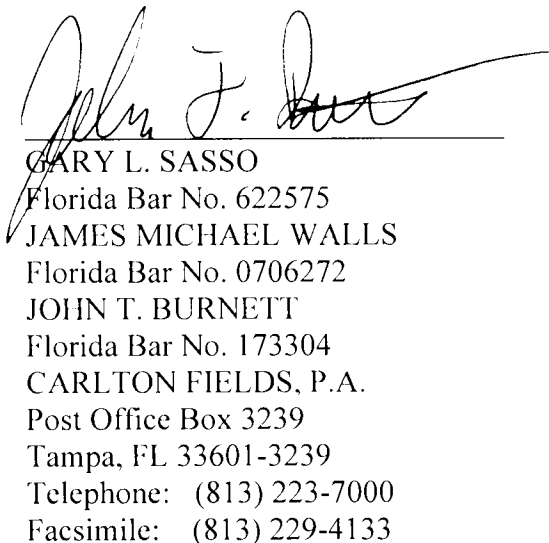 John T. Burnett
GARY L. SASSO
Florida Bar No. 622575
JAMES MICHAEL WALLS
Florida Bar No. 0706272
JOHN T. BURNETT
Florida Bar No. 173304
CARLTON FIELDS, P.A.
Post Office Box 3239
Tampa, FL 33601-3239
Telephone: (813) 223-7000
Facsimile: (813) 229-4133